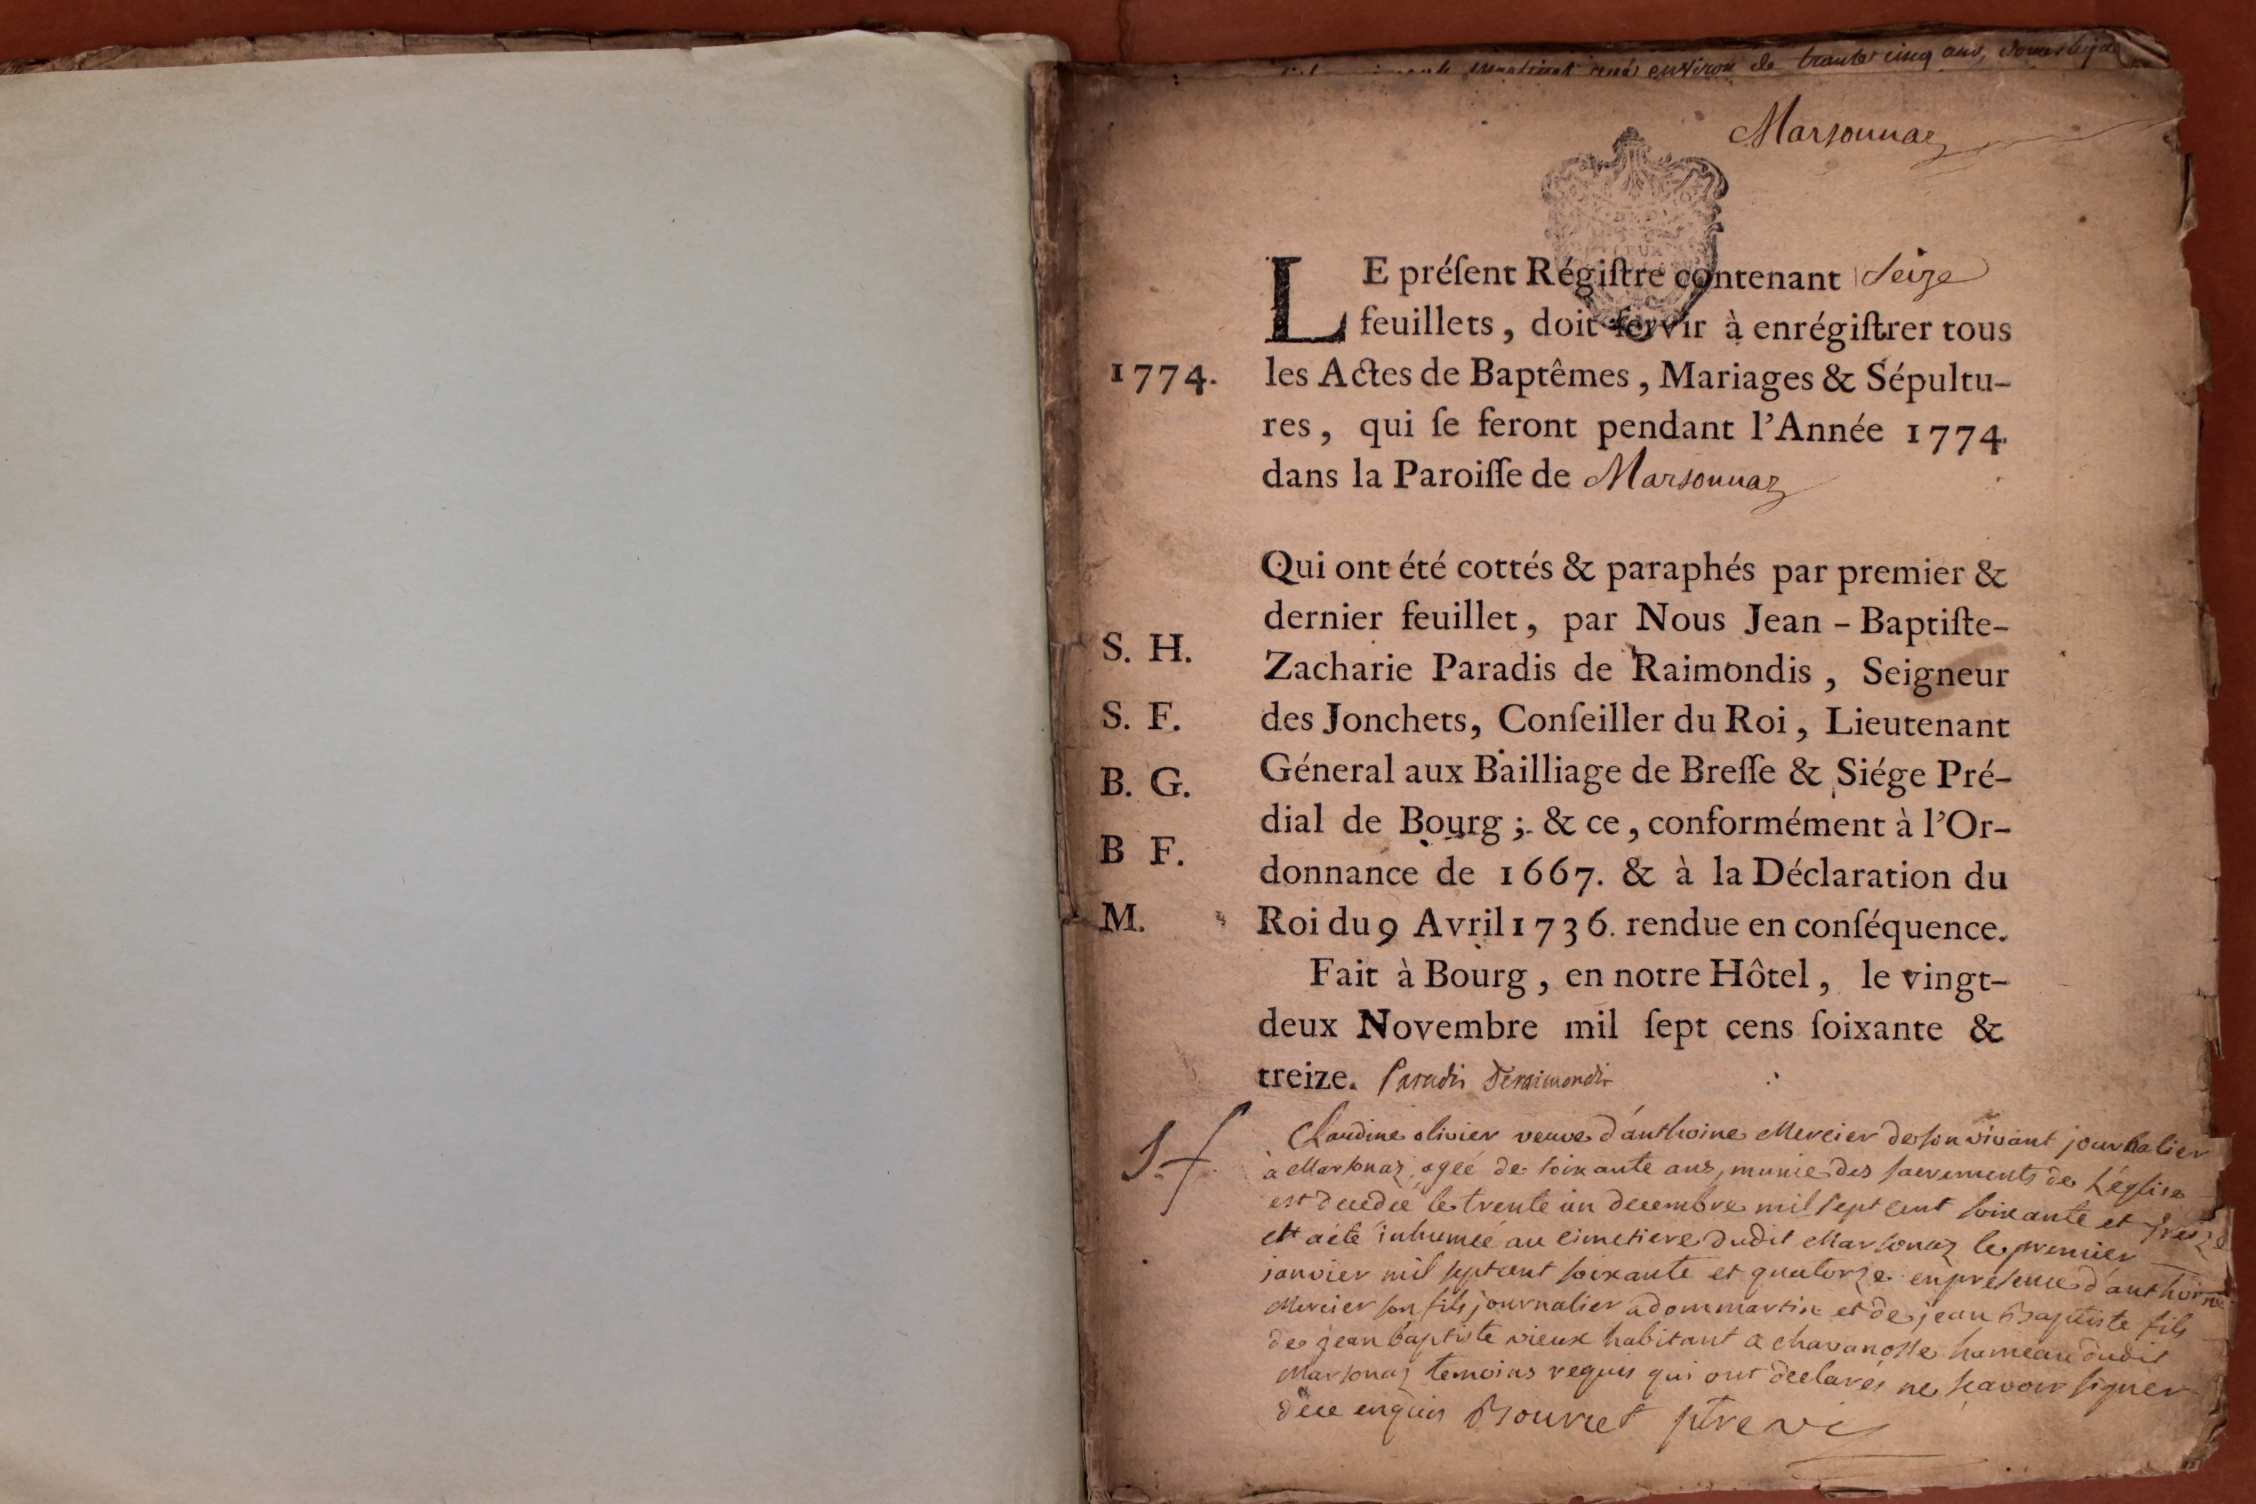 environ de trante cinq ans,
Marsonnaz
LE préſent Régiſtre contenant Seize
feuillets, doit ſervir à enrégiſtrer tous
1774.
les Actes de Baptêmes, Mariages & Sépultu-
res, qui ſe feront pendant l'Année 1774.
dans la Paroiſſe de Marsonnaz
Qui ont été cottés & paraphés par premier &
dernier feuillet, par Nous Jean-Baptiſte-
S. H.
Zacharie Paradis de Raimondis, Seigneur
S. F.
des Jonchets, Conſeiller du Roi, Lieutenant
B. G.
Géneral aux Bailliage de Breſſe & Siége Pré-
dial de Bourg; & ce, conformément à l'Or-
B F.
donnance de 1667. & à la Déclaration du
M.
Roi du 9 Avril 1736. rendue en conſéquence.
Fait à Bourg, en notre Hôtel, le vingt-
deux Novembre mil ſept cens ſoixante &
treize. Paradis Deraimondis
S. f.
Claudine olivier veuve d'anthoine Mercier de son vivant journalier
à Marsonaz, agée de soixante ans, munie des sacrements de l'église
est decedée le trente un decembre mil sept cent soixante et treize
et a été inhumée au cimetiere dudit Marsonaz le premier
janvier mil sept cent soixante et quatorze en presence d'anthoine
Mercier son fils journalier a dommartin et de jean Baptiste fils
de jean baptiste vieux habitant a chavanosse hameau dudit
Marsonaz temoins requis qui ont declarés ne sçavoir signer
de ce enquis Bourret ptre vic